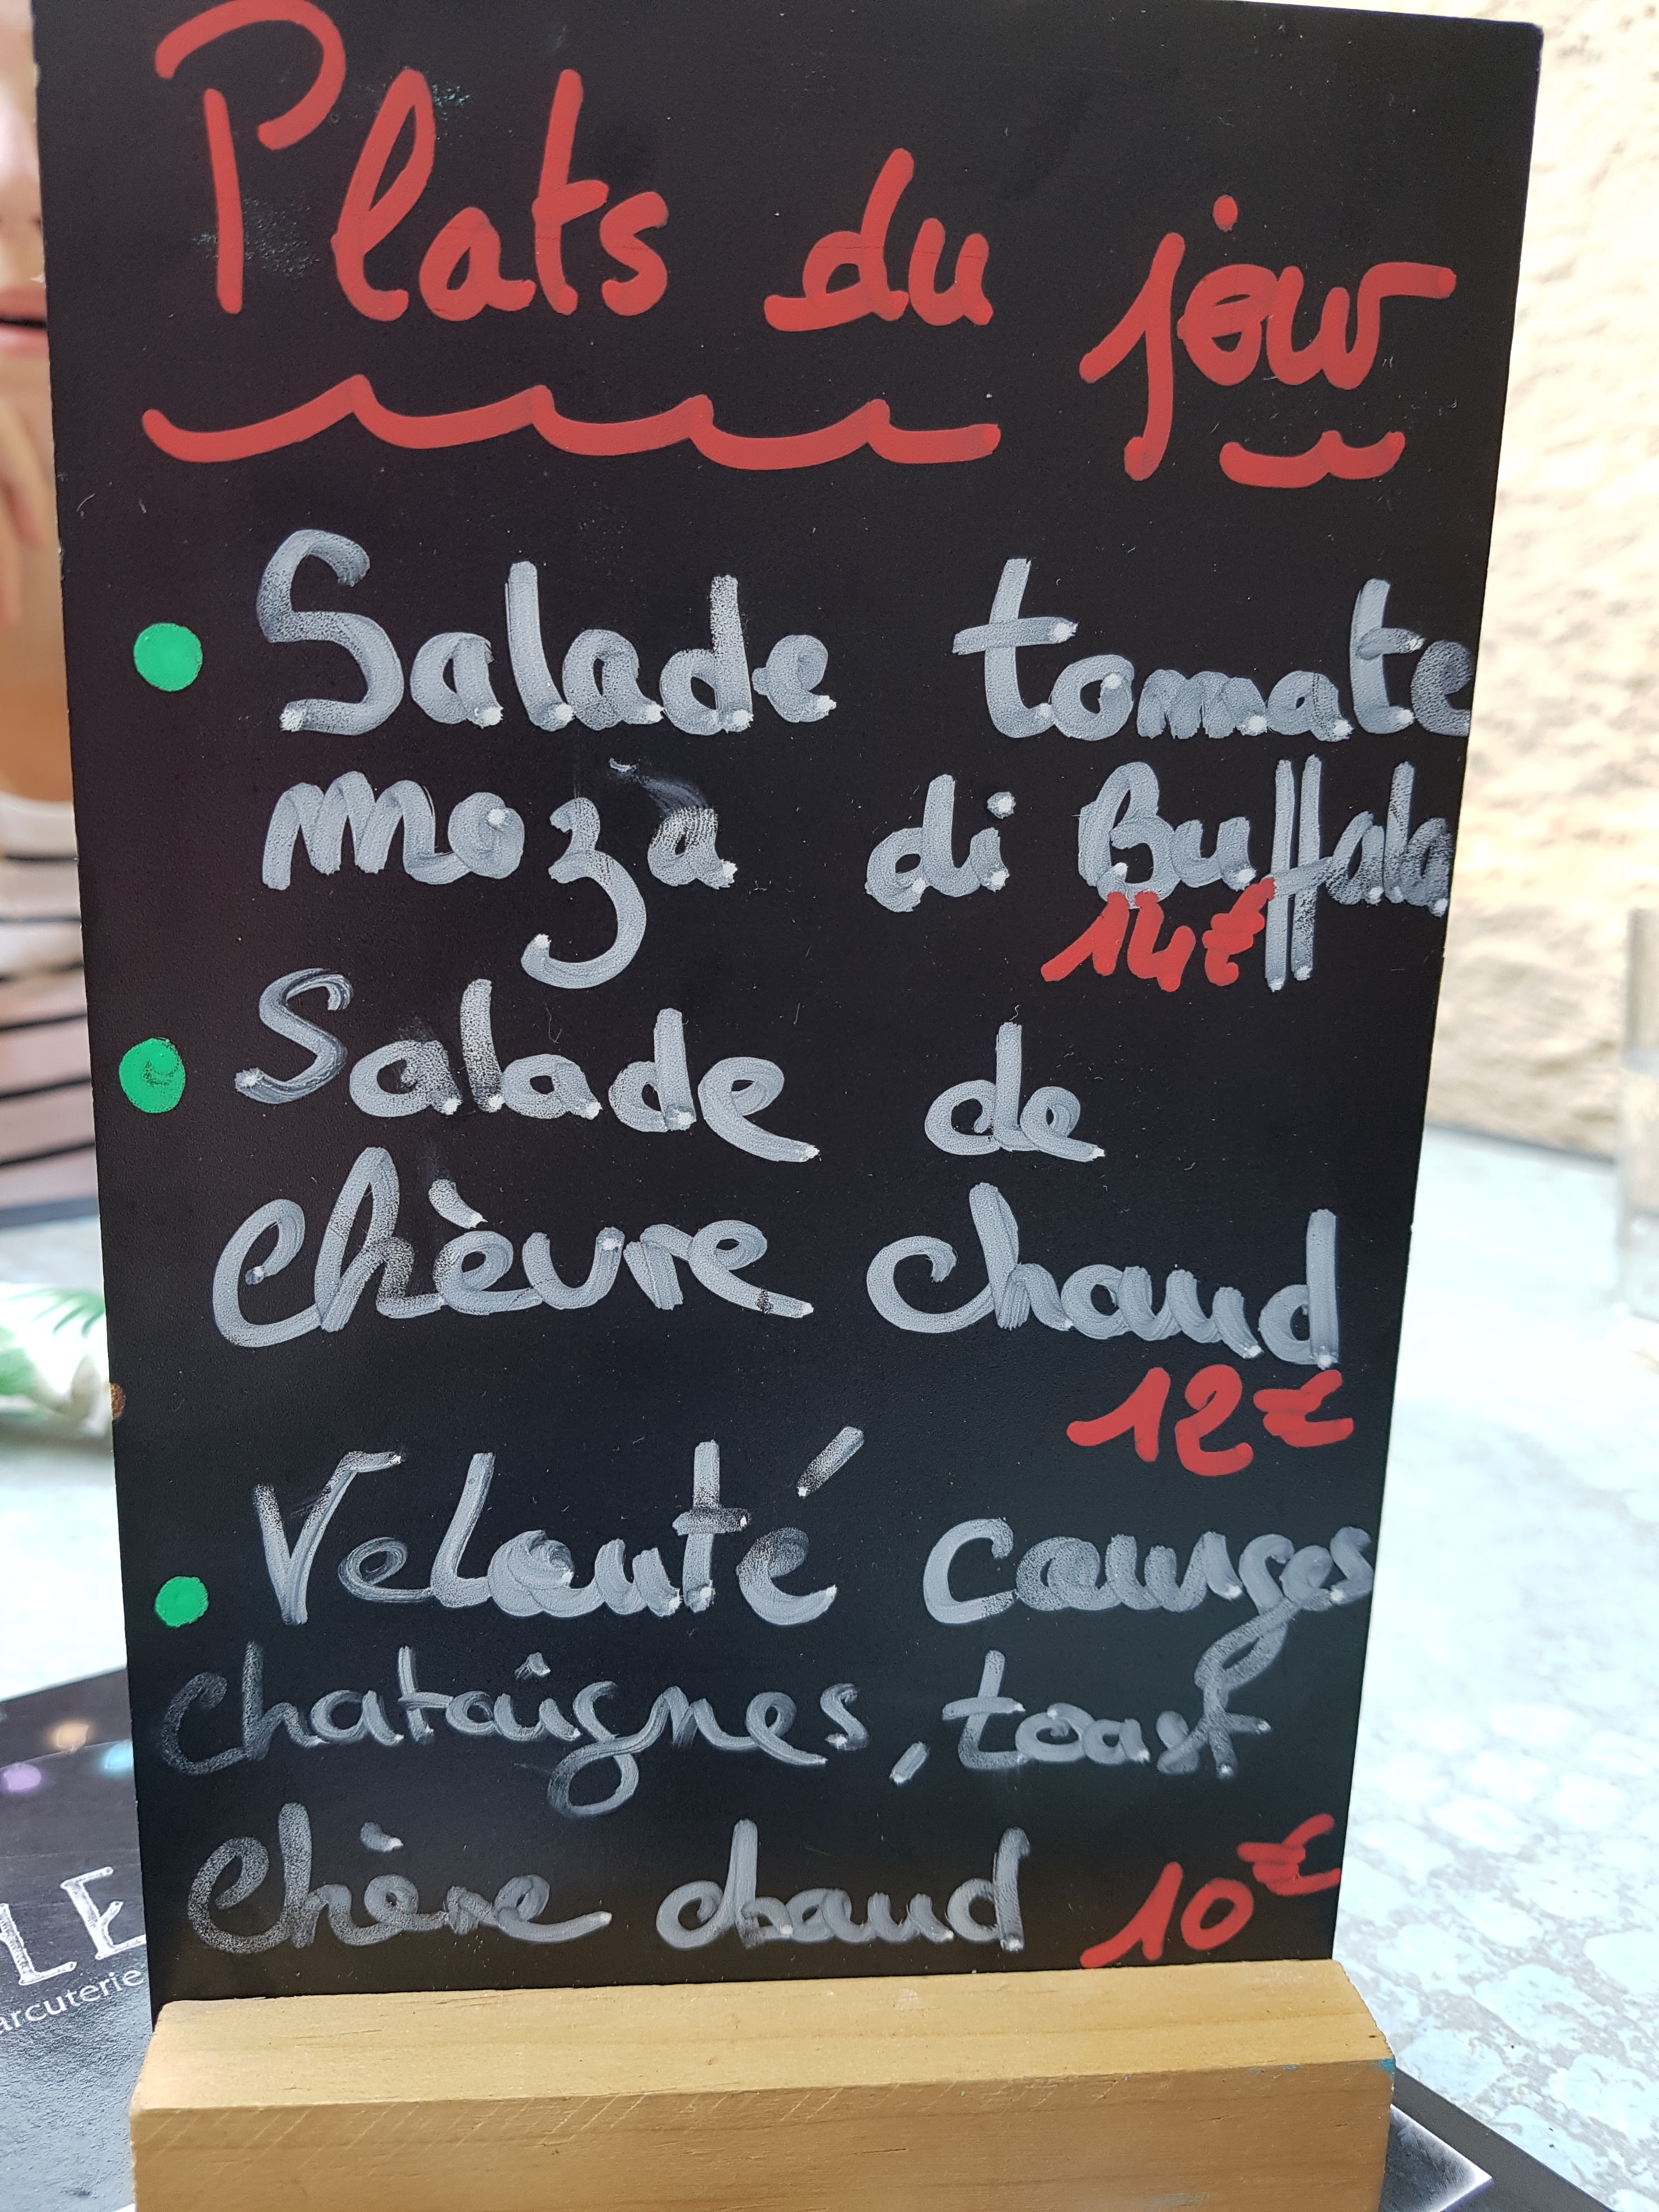 Plats du jour
Salade tomate
moza di Buffala
14€
Salade de
Chèvre chaud
12€
Velouté courges
chataignes, toast
Chèvre chaud 10€
LE
arcuterie